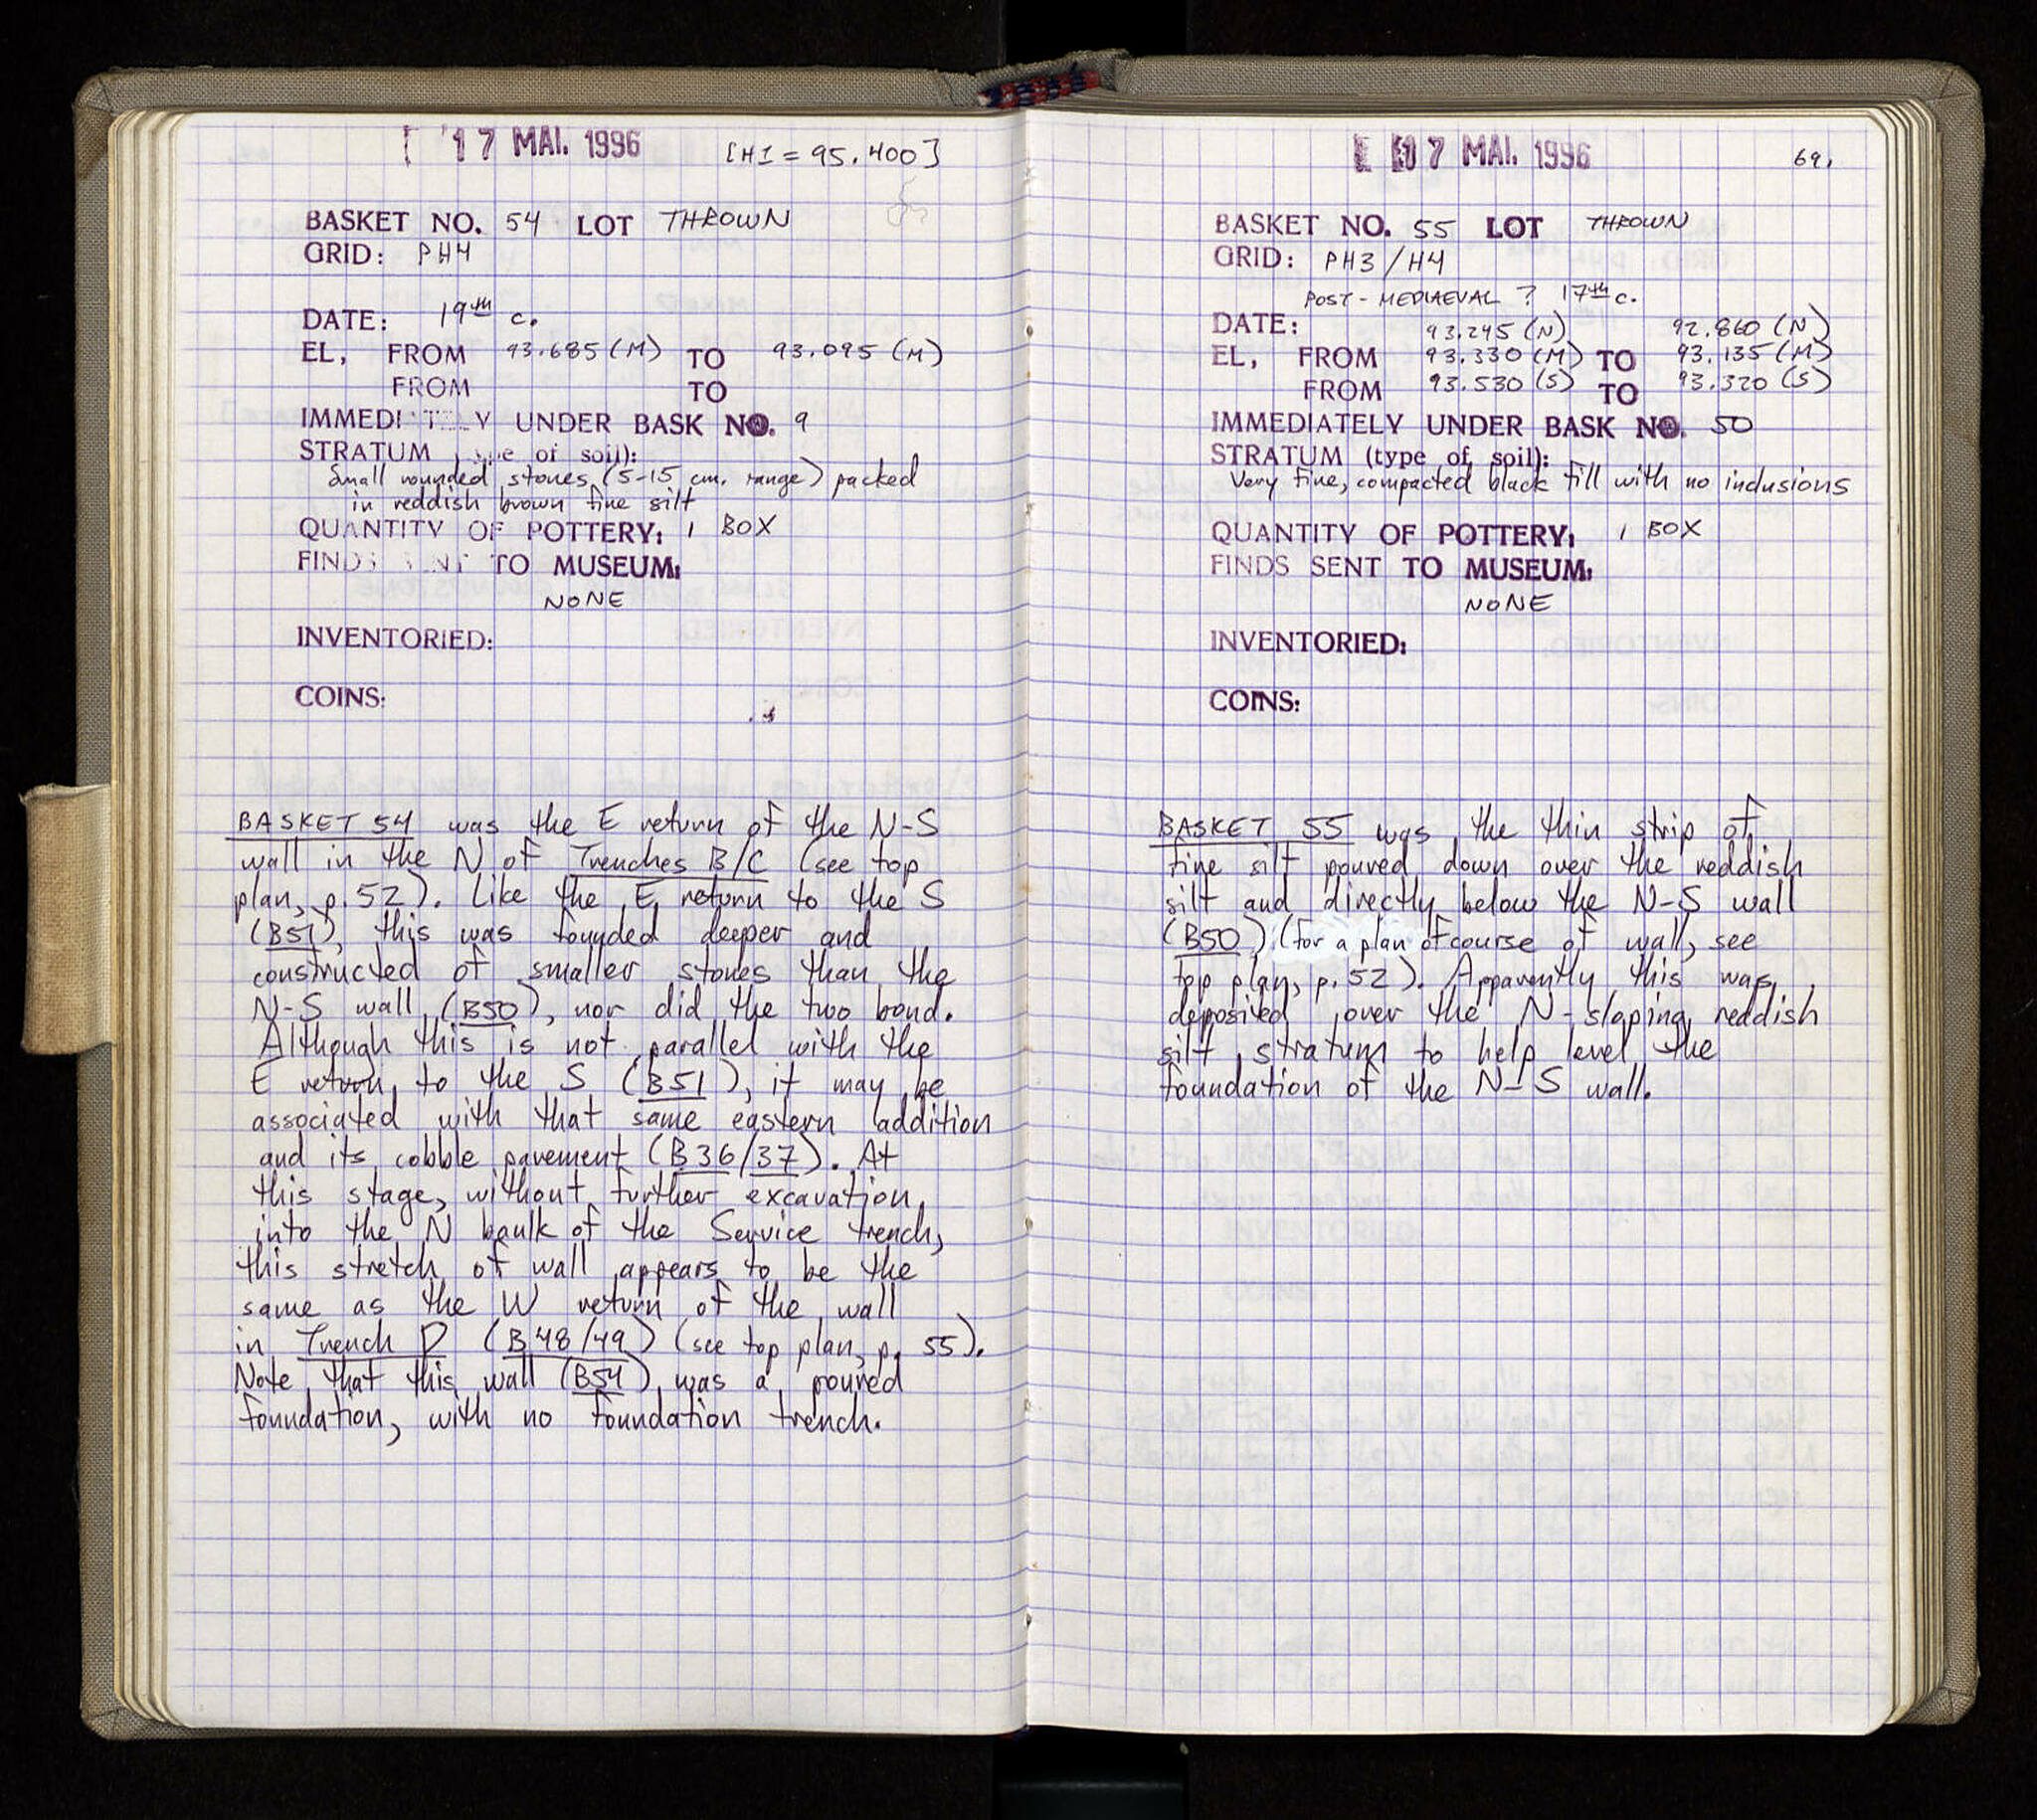 17 MAI. 1996 [HI = 95.400]
BASKET NO. 54 LOT THROWN
GRID: PH4
DATE: 19th c.
EL, FROM 93.685 (M) TO 93.095 (M)
FROM TO
IMMEDI T Y UNDER BASK NO. 9
STRATUM (type of soil):
Small rounded stones (5-15 cm. range) packed
in reddish brown fine silt
QUANTITY OF POTTERY: 1 BOX
FINDS SENT TO MUSEUM:
NONE
INVENTORIED:
COINS:
BASKET 54 was the E return of the N-S
wall in the N of Trenches B/C (see top
plan, p. 52). Like the E return to the S
(B51), this was founded deeper and
constructed of smaller stones than the
N-S wall (B50), nor did the two bond.
Although this is not parallel with the
E return to the S (B51), it may be
associated with that same eastern addition
and its cobble pavement (B36/37). At
this stage, without further excavation
into the N baulk of the Service trench,
this stretch of wall appears to be the
same as the W return of the wall
in Trench D (B48/49) (see top plan, p. 55).
Note that this wall (B54) was a poured
foundation, with no foundation trench.
17 MAI. 1996 69.
BASKET NO. 55 LOT THROWN
GRID: PH3/H4
POST-MEDIAEVAL ? 17th c.
DATE: 93.245 (N) 92.860 (N)
EL, FROM 93.330 (M) TO 93.135 (M)
FROM 93.530 (S) TO 93.320 (S)
IMMEDIATELY UNDER BASK NO. 50
STRATUM (type of soil):
Very fine, compacted black fill with no inclusions
QUANTITY OF POTTERY: 1 BOX
FINDS SENT TO MUSEUM:
NONE
INVENTORIED:
COINS:
BASKET 55 was the thin strip of
fine silt poured down over the reddish
silt and directly below the N-S wall
(B50) (for a plan of course of wall, see
top plan, p. 52). Apparently this was
deposited over the N-sloping reddish
silt stratum to help level the
foundation of the N-S wall.